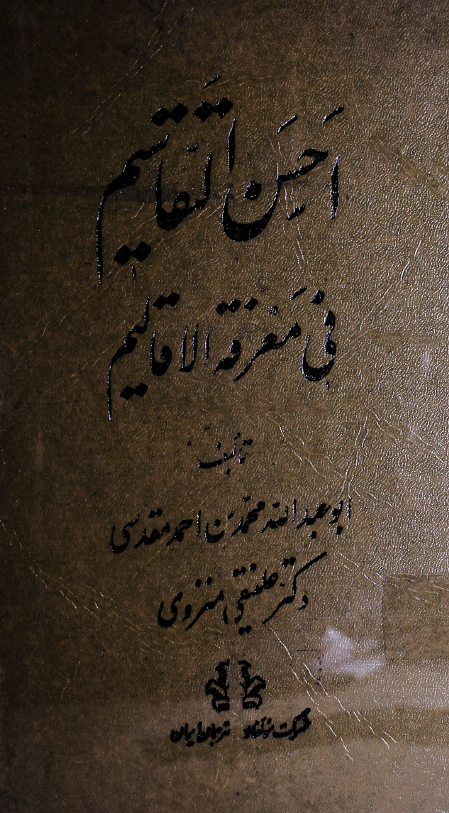 احسن التقاسیم
فی معرفة الاقالیم
تألیف
ابو عبدالله محمد بن احمد مقدسی
دکتر علینقی منزوی
شرکت مؤلفان و مترجمان ایران